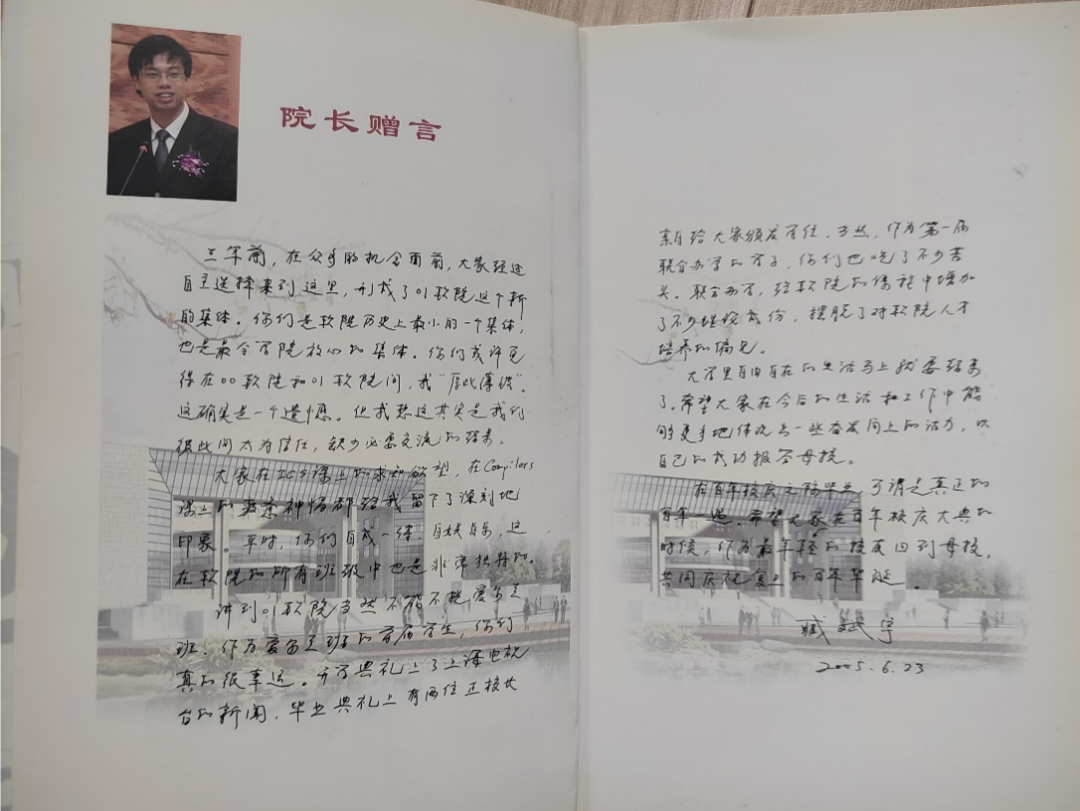 院长赠言
三年前，在众多的机会面前，大家经过
自主选择来到这里，形成了01软院这个新
的集体。你们是软院历史上最小的一个集体，
也是最令学院放心的集体。你们或许觉
得在00软院和01软院间，我“厚此薄彼”。
这确实是一个遗憾。但我想这其实是我们
彼此间太为信任，缺少必要交流的结果。
大家在ICS课上的求知欲望，在Compilers
课上的疲惫神情都给我留下了深刻地
印象。平时，你们自成一体，自娱自乐，这
在软院的所有班级中也是非常独特的。
讲到01软院当然不能不提爱尔兰
班。作为爱尔兰班的首届学生，你们
真的很幸运。开学典礼上了上海电视
台的新闻，毕业典礼上有两位正校长
亲自给大家颁发学位。当然，作为第一届
联合办学的学子，你们也吃了不少苦
头。联合办学，给软院的课程中增加
了不少理论成份，摆脱了对软院人才
培养的偏见。
大学里自由自在的生活马上就要结束
了。希望大家在今后的生活和工作中能
够更多地体现出一些奋发向上的活力，以
自己的成功报答母校。
在百年校庆之际毕业，可谓是真正的
百年一遇。希望大家在百年校庆大典的
时候，作为最年轻的校友回到母校，
共同庆祝复旦的百年华诞。
臧斌宇
2005.6.23